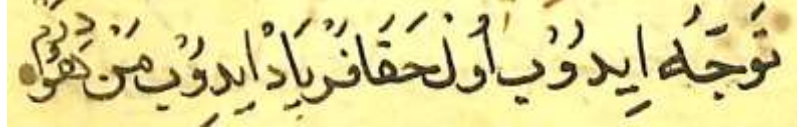 تَوَجّه اِيدُوْب اُولْ حَقَا فَرْيَادْ اِيدُوْب مَنْ